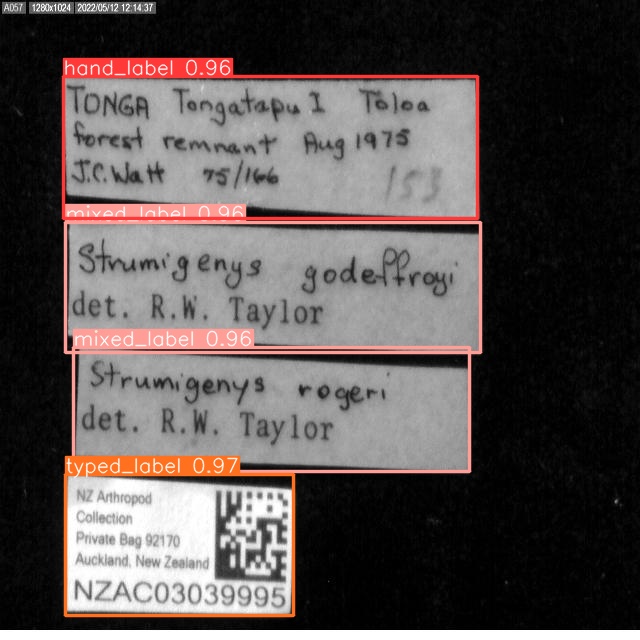 A057 1280x1024 2022/05/12 12:14:37
hand_label 0.96
TONGA Tongatapu I Toloa
forest remnant Aug 1975
J.C. Watt 75/166
153
mixed_label 0.96
Strumigenys godeffroyi
det. R.W. Taylor
mixed_label 0.96
Strumigenys rogeri
det. R.W. Taylor
typed_label 0.97
NZ Arthropod
Collection
Private Bag 92170
Auckland, New Zealand
NZAC03039995